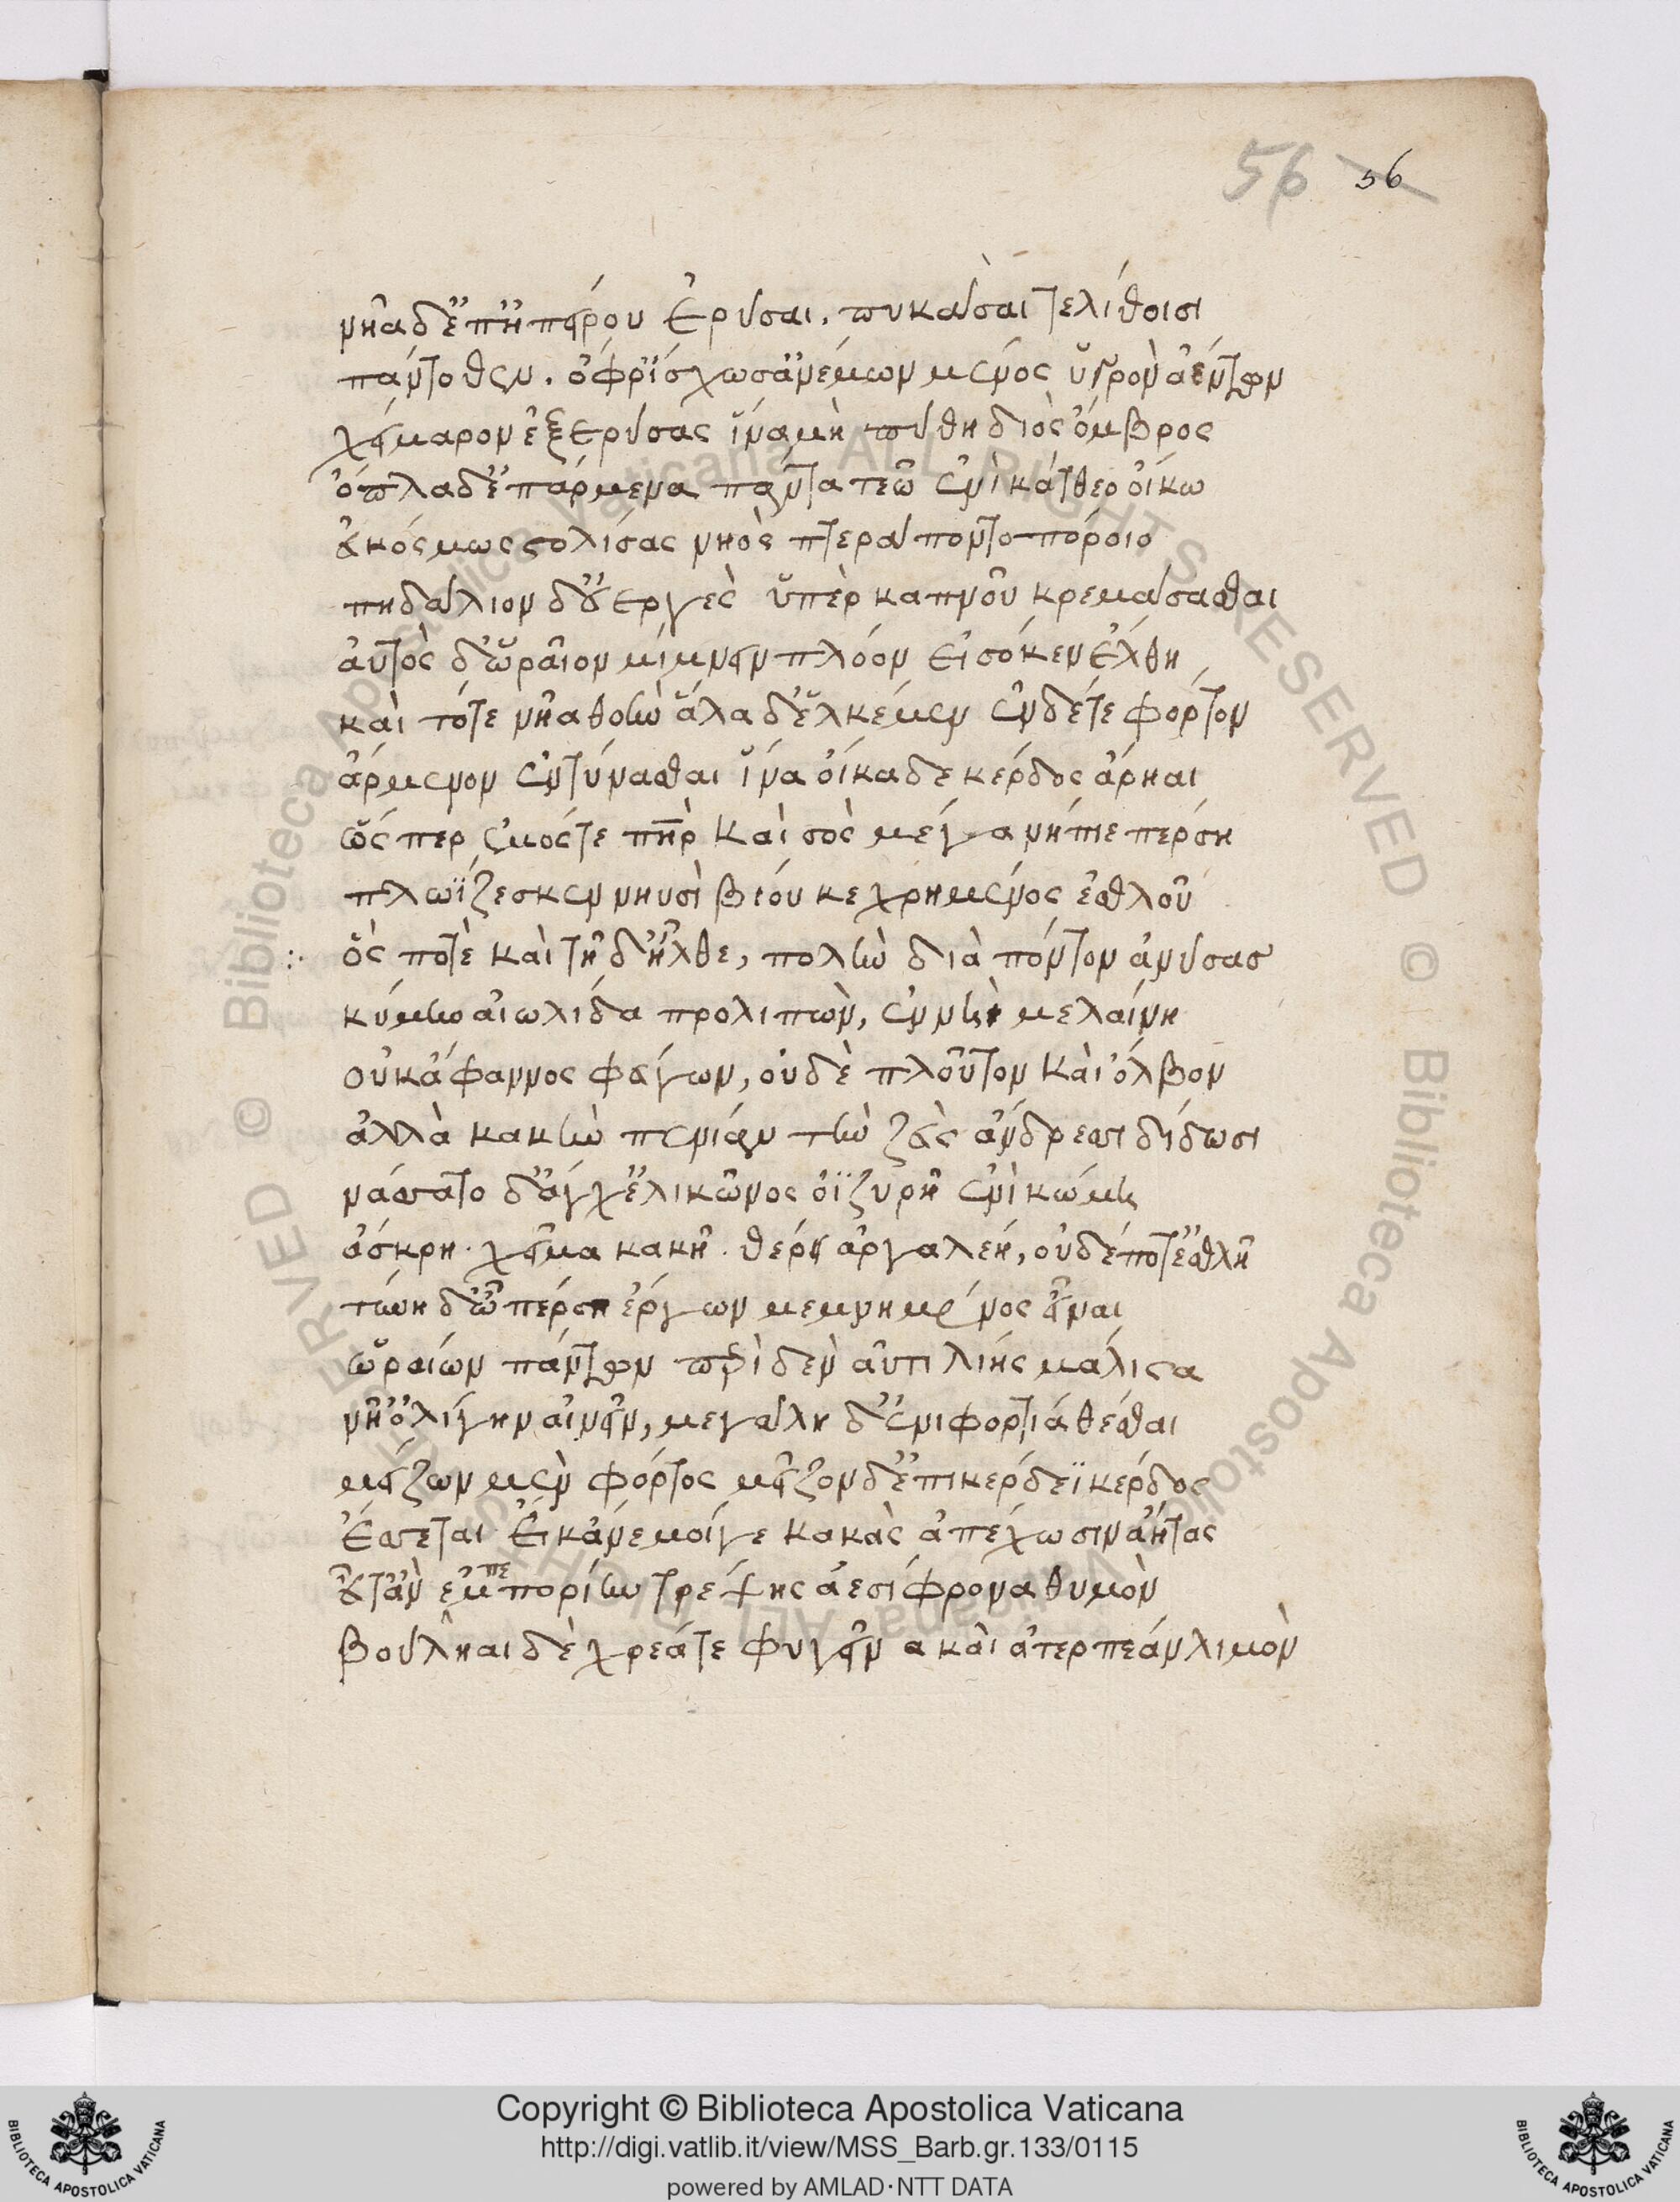 56 56
νῆα δ' ἐπ' ἠπείρου ἐρύσαι. πυκάσαι τε λίθοισι
πάντοθεν. ὄφρ' ἴσχωσ' ἀνέμων μένος ὑγρὸν ἀέντων
χείμαρον ἐξερύσας ἵνα μὴ πύθη διὸς ὄμβρος
ὅπλα δ' ἐπάρμενα πάντα τεῶ ἐνὶ κάτθεο οἴκω
εὐκόσμως στολίσας νηὸς πτερὰ ποντοπόροιο
πηδάλιον δ' εὐεργὲς ὑπὲρ καπνοῦ κρεμάσασθαι
αὐτὸς δ' ὡραῖον μίμνειν πλόον εἰσόκεν ἔλθη
καὶ τότε νῆα θοὴν ἅλα δ' ἑλκέμεν ἐν δέ τε φόρτον
ἄρμενον ἐντύνασθαι ἵνα οἴκαδε κέρδος ἄρηαι
ὥς περ ἐμός τε πηρ καὶ σὸς μέγα νήπιε πέρση
πλωΐζεσκεν νηυσὶ βίου κεχρημένος ἐσθλοῦ
:· ὅς ποτὲ καὶ τῇ δ' ἦλθε, πολὺν διὰ πόντον ἀνύσας
κύμην αἰωλίδα προλιπὼν, ἐν νηὶ μελαίνη
οὐκ ἄφαννος φεύγων, οὐδὲ πλοῦτον καὶ ὄλβον
ἀλλὰ κακὴν πενίαν τὴν ζεὺς ἄνδρεσσι δίδωσι
νάσσατο δ' ἄγχ' ἑλικῶνος ὀϊζυρῆ ἐνὶ κώμη
ἄσκρη· χεῖμα κακῆ· θέρει ἀργαλέη, οὐδέ ποτ' ἐσθλῆ
τύνη δ' ὦ πέρση ἔργων μεμνημένος εἶναι
ὡραίων πάντων περὶ δὲ ναυτιλίης μάλιστα
νῆ' ὀλίγην αἰνεῖν, μεγάλη δ' ἐνὶ φορτία θέσθαι
μείζων μὲν φόρτος μεῖζον δ' ἐπὶ κέρδεϊ κέρδος
ἔσσεται εἴ κ' ἄνεμοί γε κακὰς ἀπέχωσιν ἀήτας
εὖτ' ἂν ἐμπεπορίην τρέψης ἀεσίφρονα θυμὸν
βούληαι δὲ χρέα τε φυγεῖν α καὶ ἀτερπέα λιμὸν
Copyright © Biblioteca Apostolica Vaticana
http://digi.vatlib.it/view/MSS_Barb.gr.133/0115
powered by AMLAD·NTT DATA